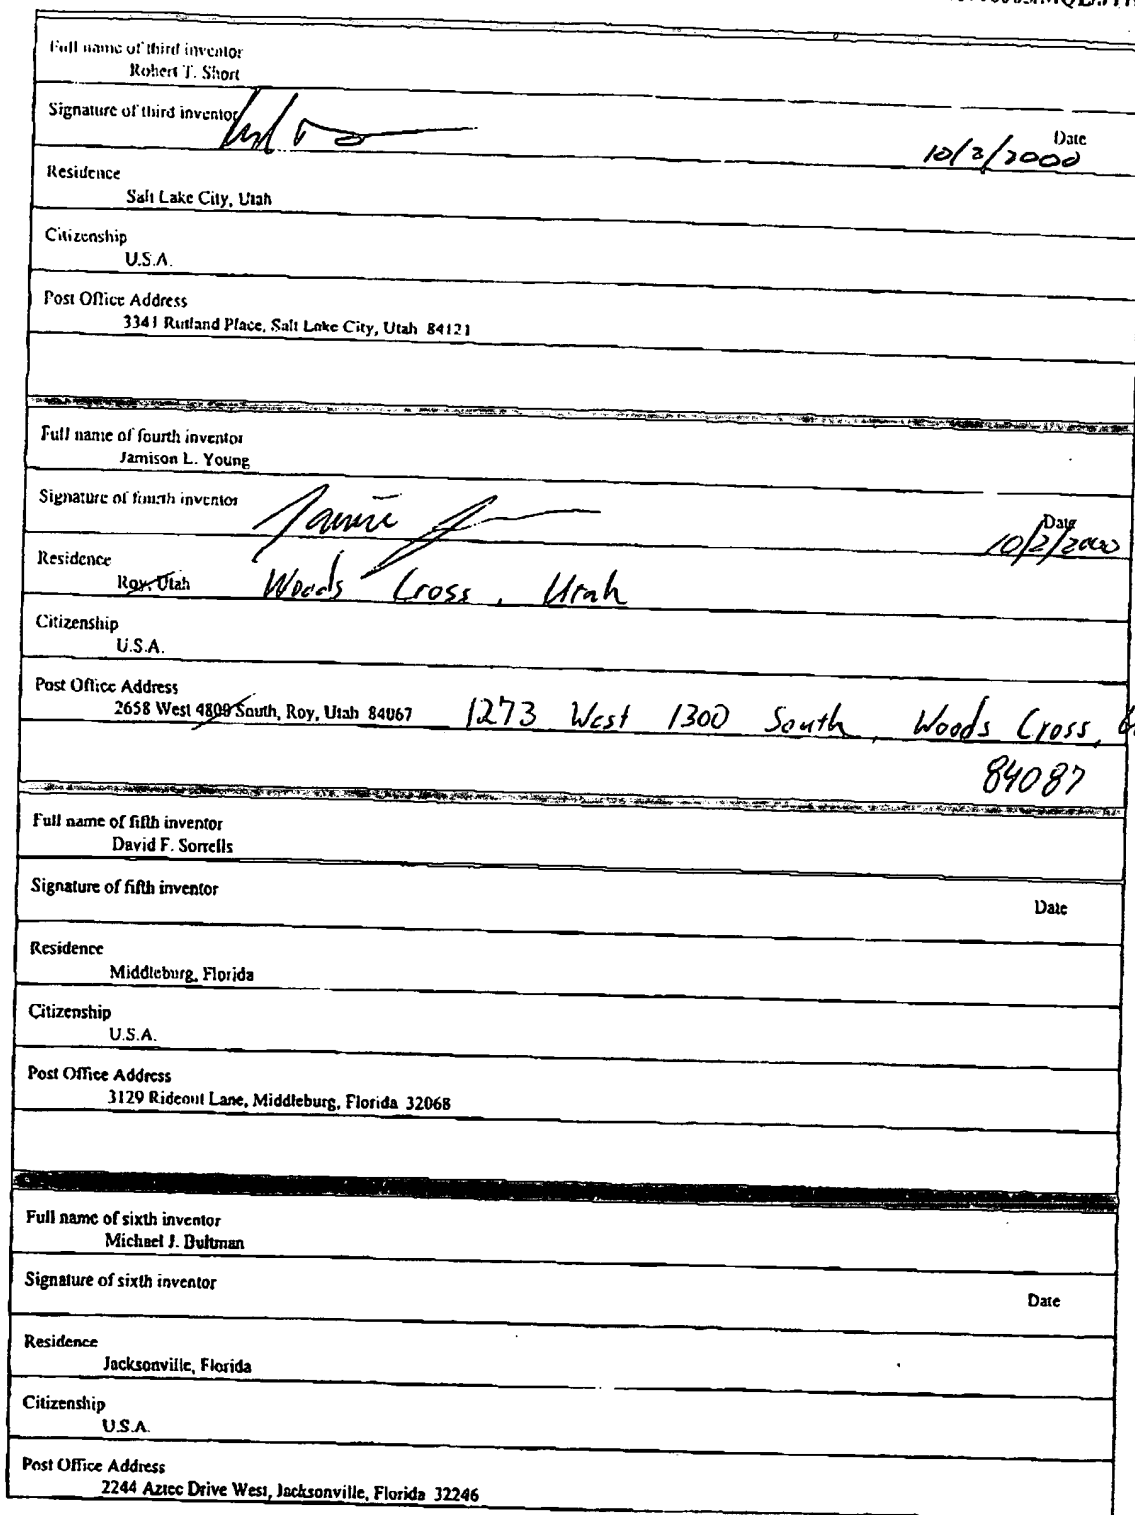 Full name of third inventor
Robert T. Short
Signature of third inventor
Date
10/2/2000
Residence
Salt Lake City, Utah
Citizenship
U.S.A.
Post Office Address
3341 Rutland Place, Salt Lake City, Utah 84121
Full name of fourth inventor
Jamison L. Young
Signature of fourth inventor
Date
10/2/2000
Residence
Roy, Utah Woods Cross, Utah
Citizenship
U.S.A.
Post Office Address
2658 West 4800 South, Roy, Utah 84067 1273 West 1300 South, Woods Cross,
84087
Full name of fifth inventor
David F. Sorrells
Signature of fifth inventor
Date
Residence
Middleburg, Florida
Citizenship
U.S.A.
Post Office Address
3129 Rideout Lane, Middleburg, Florida 32068
Full name of sixth inventor
Michael J. Bultman
Signature of sixth inventor
Date
Residence
Jacksonville, Florida
Citizenship
U.S.A.
Post Office Address
2244 Aztec Drive West, Jacksonville, Florida 32246